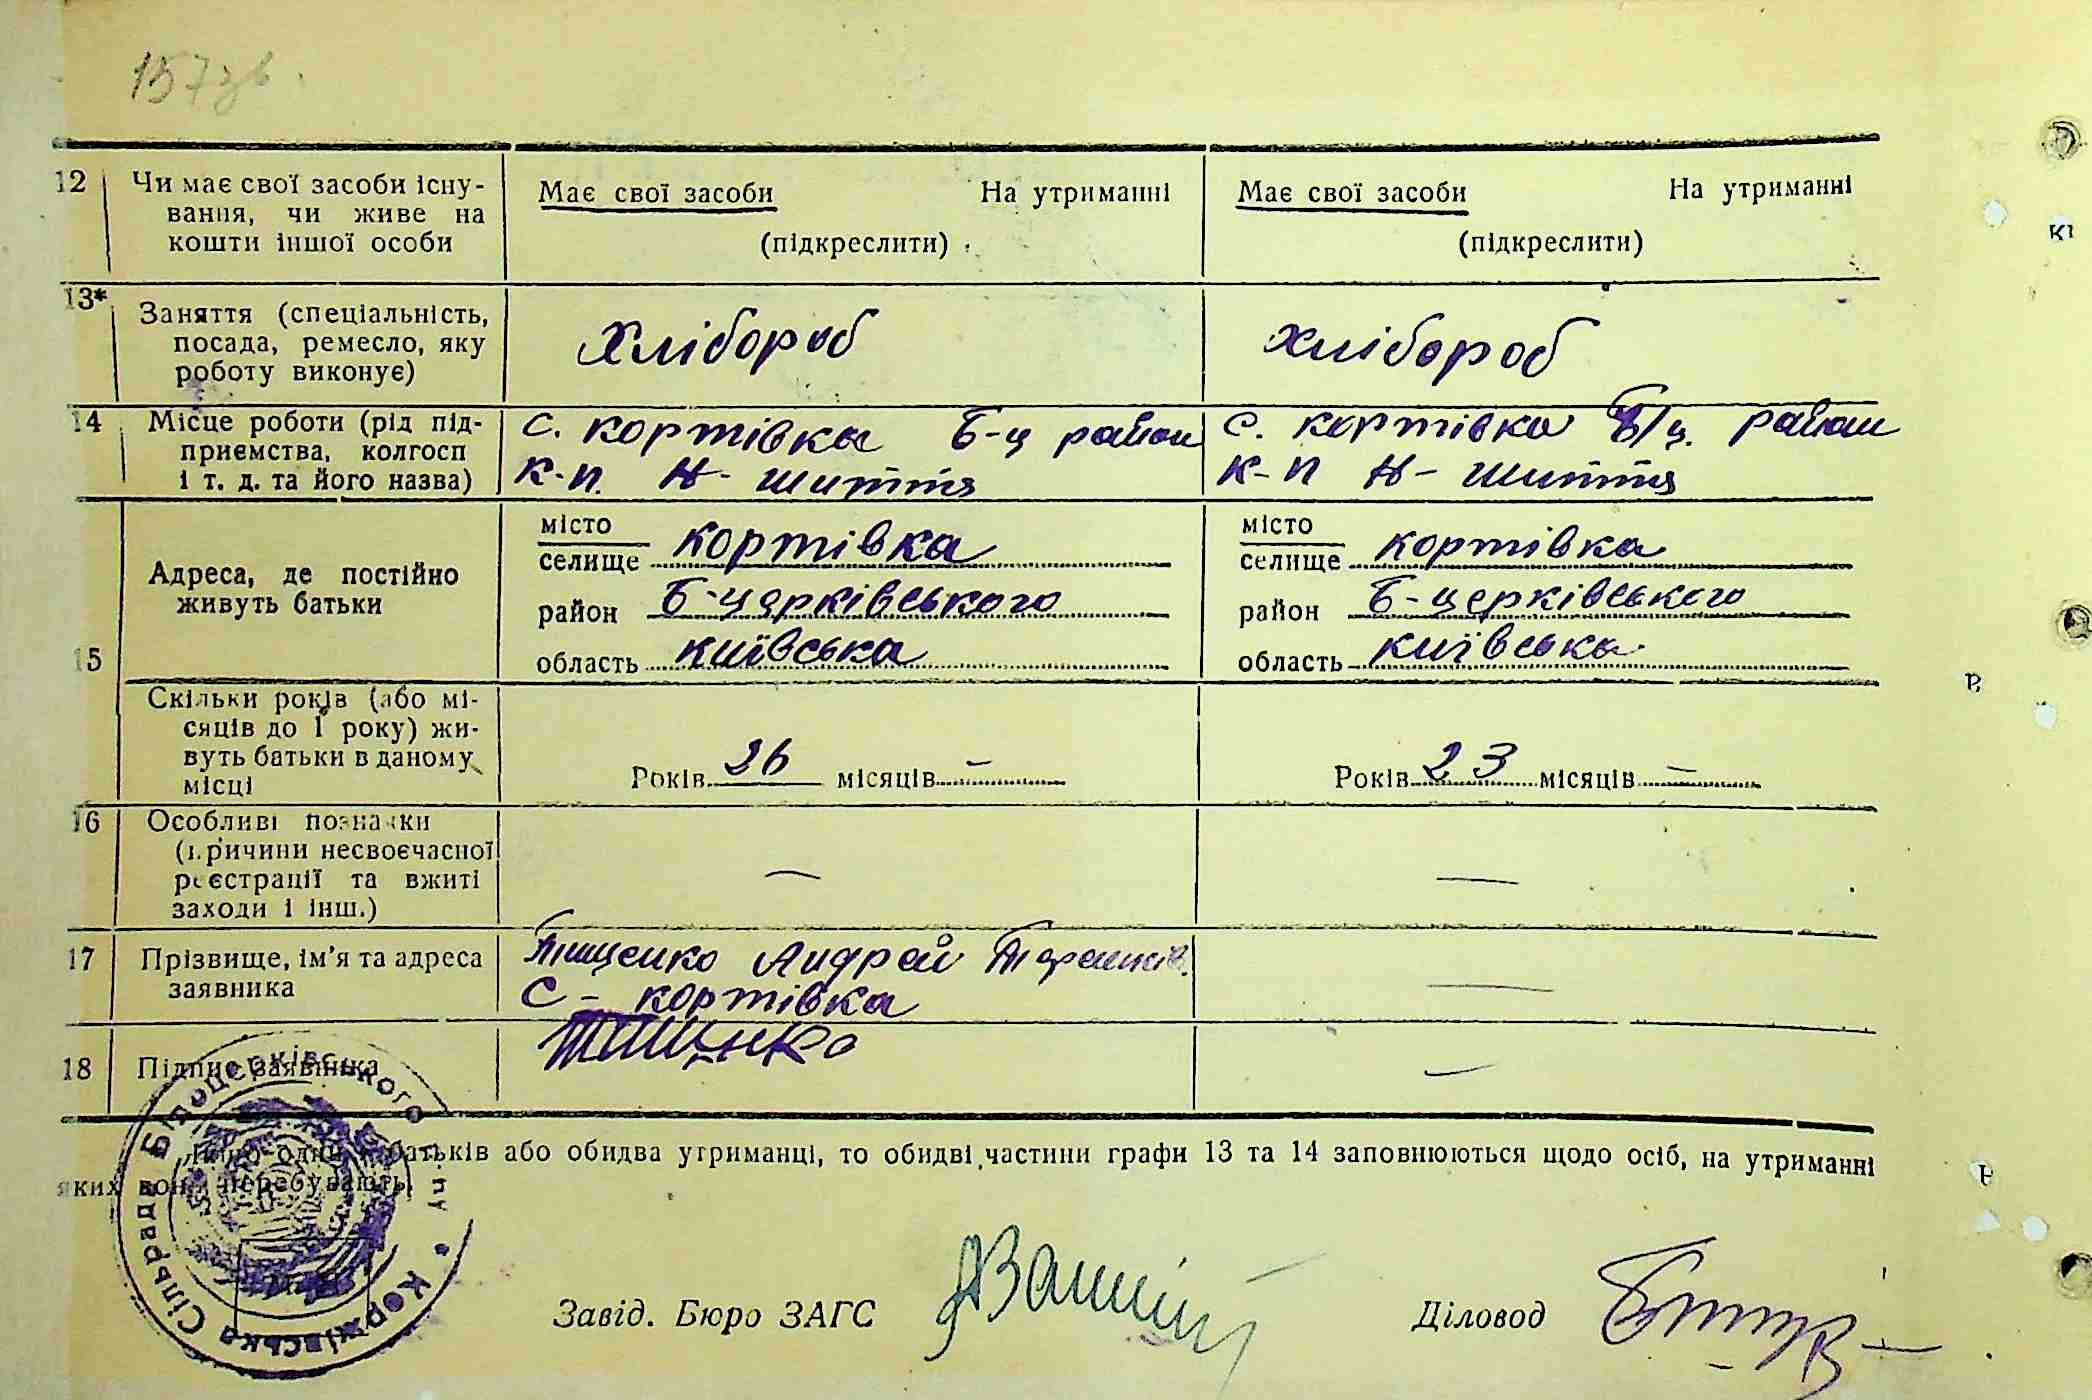 157зв.
12 Чи має свої засоби існу- Має свої засоби На утриманні Має свої засоби На утриманні
вання, чи живе на
кошти іншої особи (підкреслити) (підкреслити)
13* Заняття (спеціальність,
посада, ремесло, яку Хлібороб Хлібороб
роботу виконує)
14 Місце роботи (рід під- С. Кортівка Б-ц район С. Кортівка Б/ц. район
приємства, колгосп
і т. д. та його назва) К-п. Н- Життя К-п Н- Життя
15 Адреса, де постійно
живуть батьки
місто
селище Кортівка
район Б-церківського
область Київська
місто
селище Кортівка
район Б-церківського
область Київська
Скільки років (або мі-
сяців до 1 року) жи-
вуть батьки в даному
місці
Років 26 місяців - Років 23 місяців -
16 Особливі позначки
(причини несвоєчасної
реєстрації та вжиті — —
заходи і інш.)
17 Прізвище, ім'я та адреса Тищенко Андрей
заявника С - Кортівка —
18 Підпис заявника Тищенко —
Якщо один з батьків або обидва утриманці, то обидві частини графи 13 та 14 заповнюються щодо осіб, на утриманні
яких вони перебувають.
Коржівська Сільрада Білоцерківського р-ну
Завід. Бюро ЗАГС Діловод